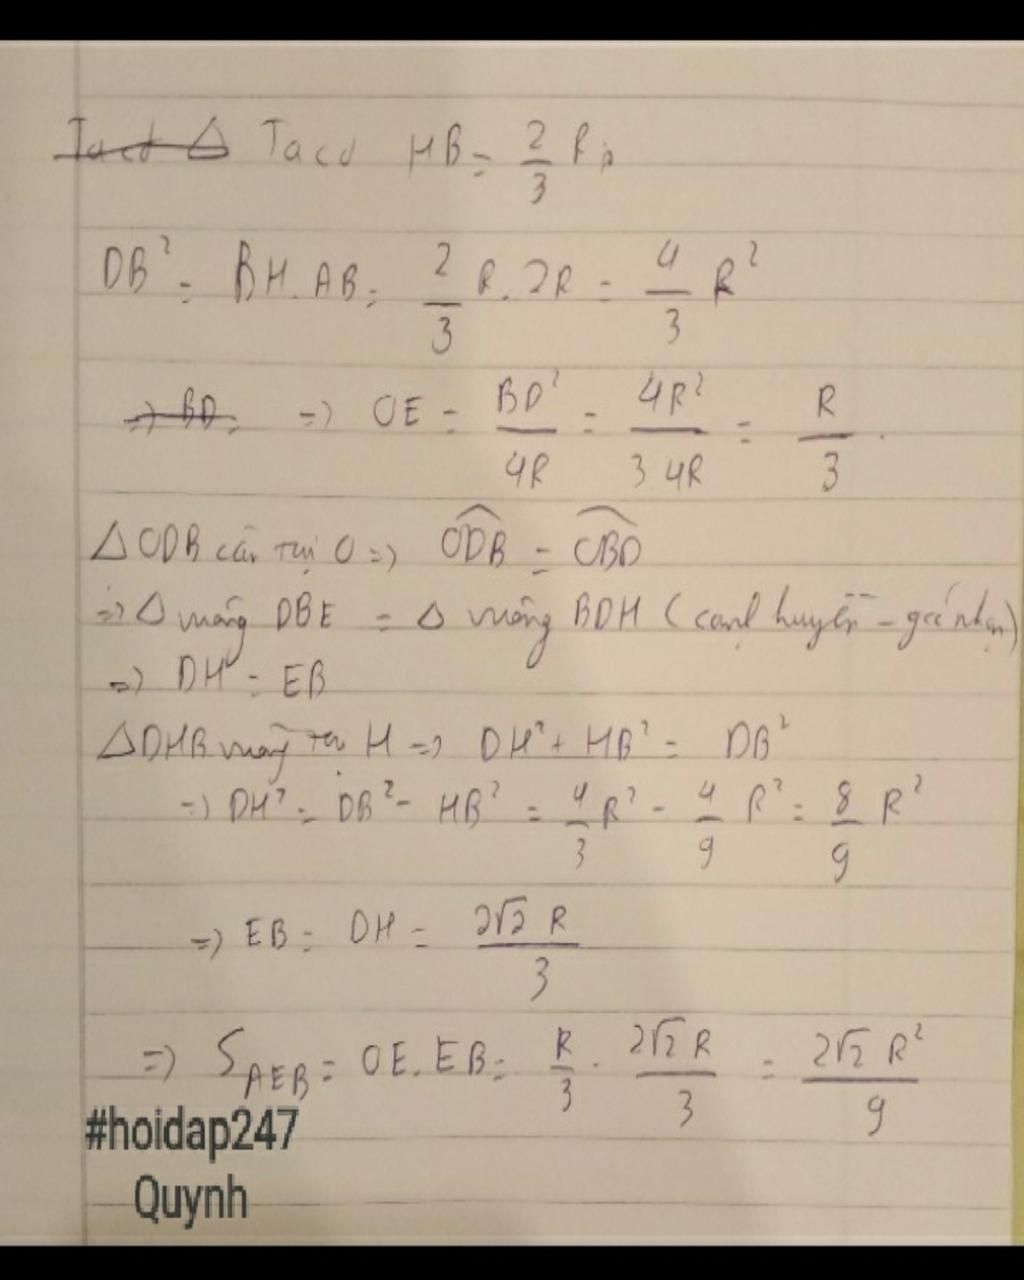 Ta có Δ Ta có HB = 2/3 R;
DB² = BH.AB = 2/3 R.2R = 4/3 R²
=> BD = => OE = BD²/4R = 4R²/3.4R = R/3.
ΔODB cân tại O => ODB = OBD
=> Δ vuông DBE = Δ vuông BDH (cạnh huyền - góc nhọn)
=> DH = EB
ΔDHB vuông tại H => DH² + HB² = DB²
=> DH² = DB² - HB² = 4/3 R² - 4/9 R² = 8/9 R²
=> EB = DH = 2√2 R/3
=> S AEB = OE.EB = R/3 . 2√2 R/3 = 2√2 R²/9
#hoidap247
Quynh